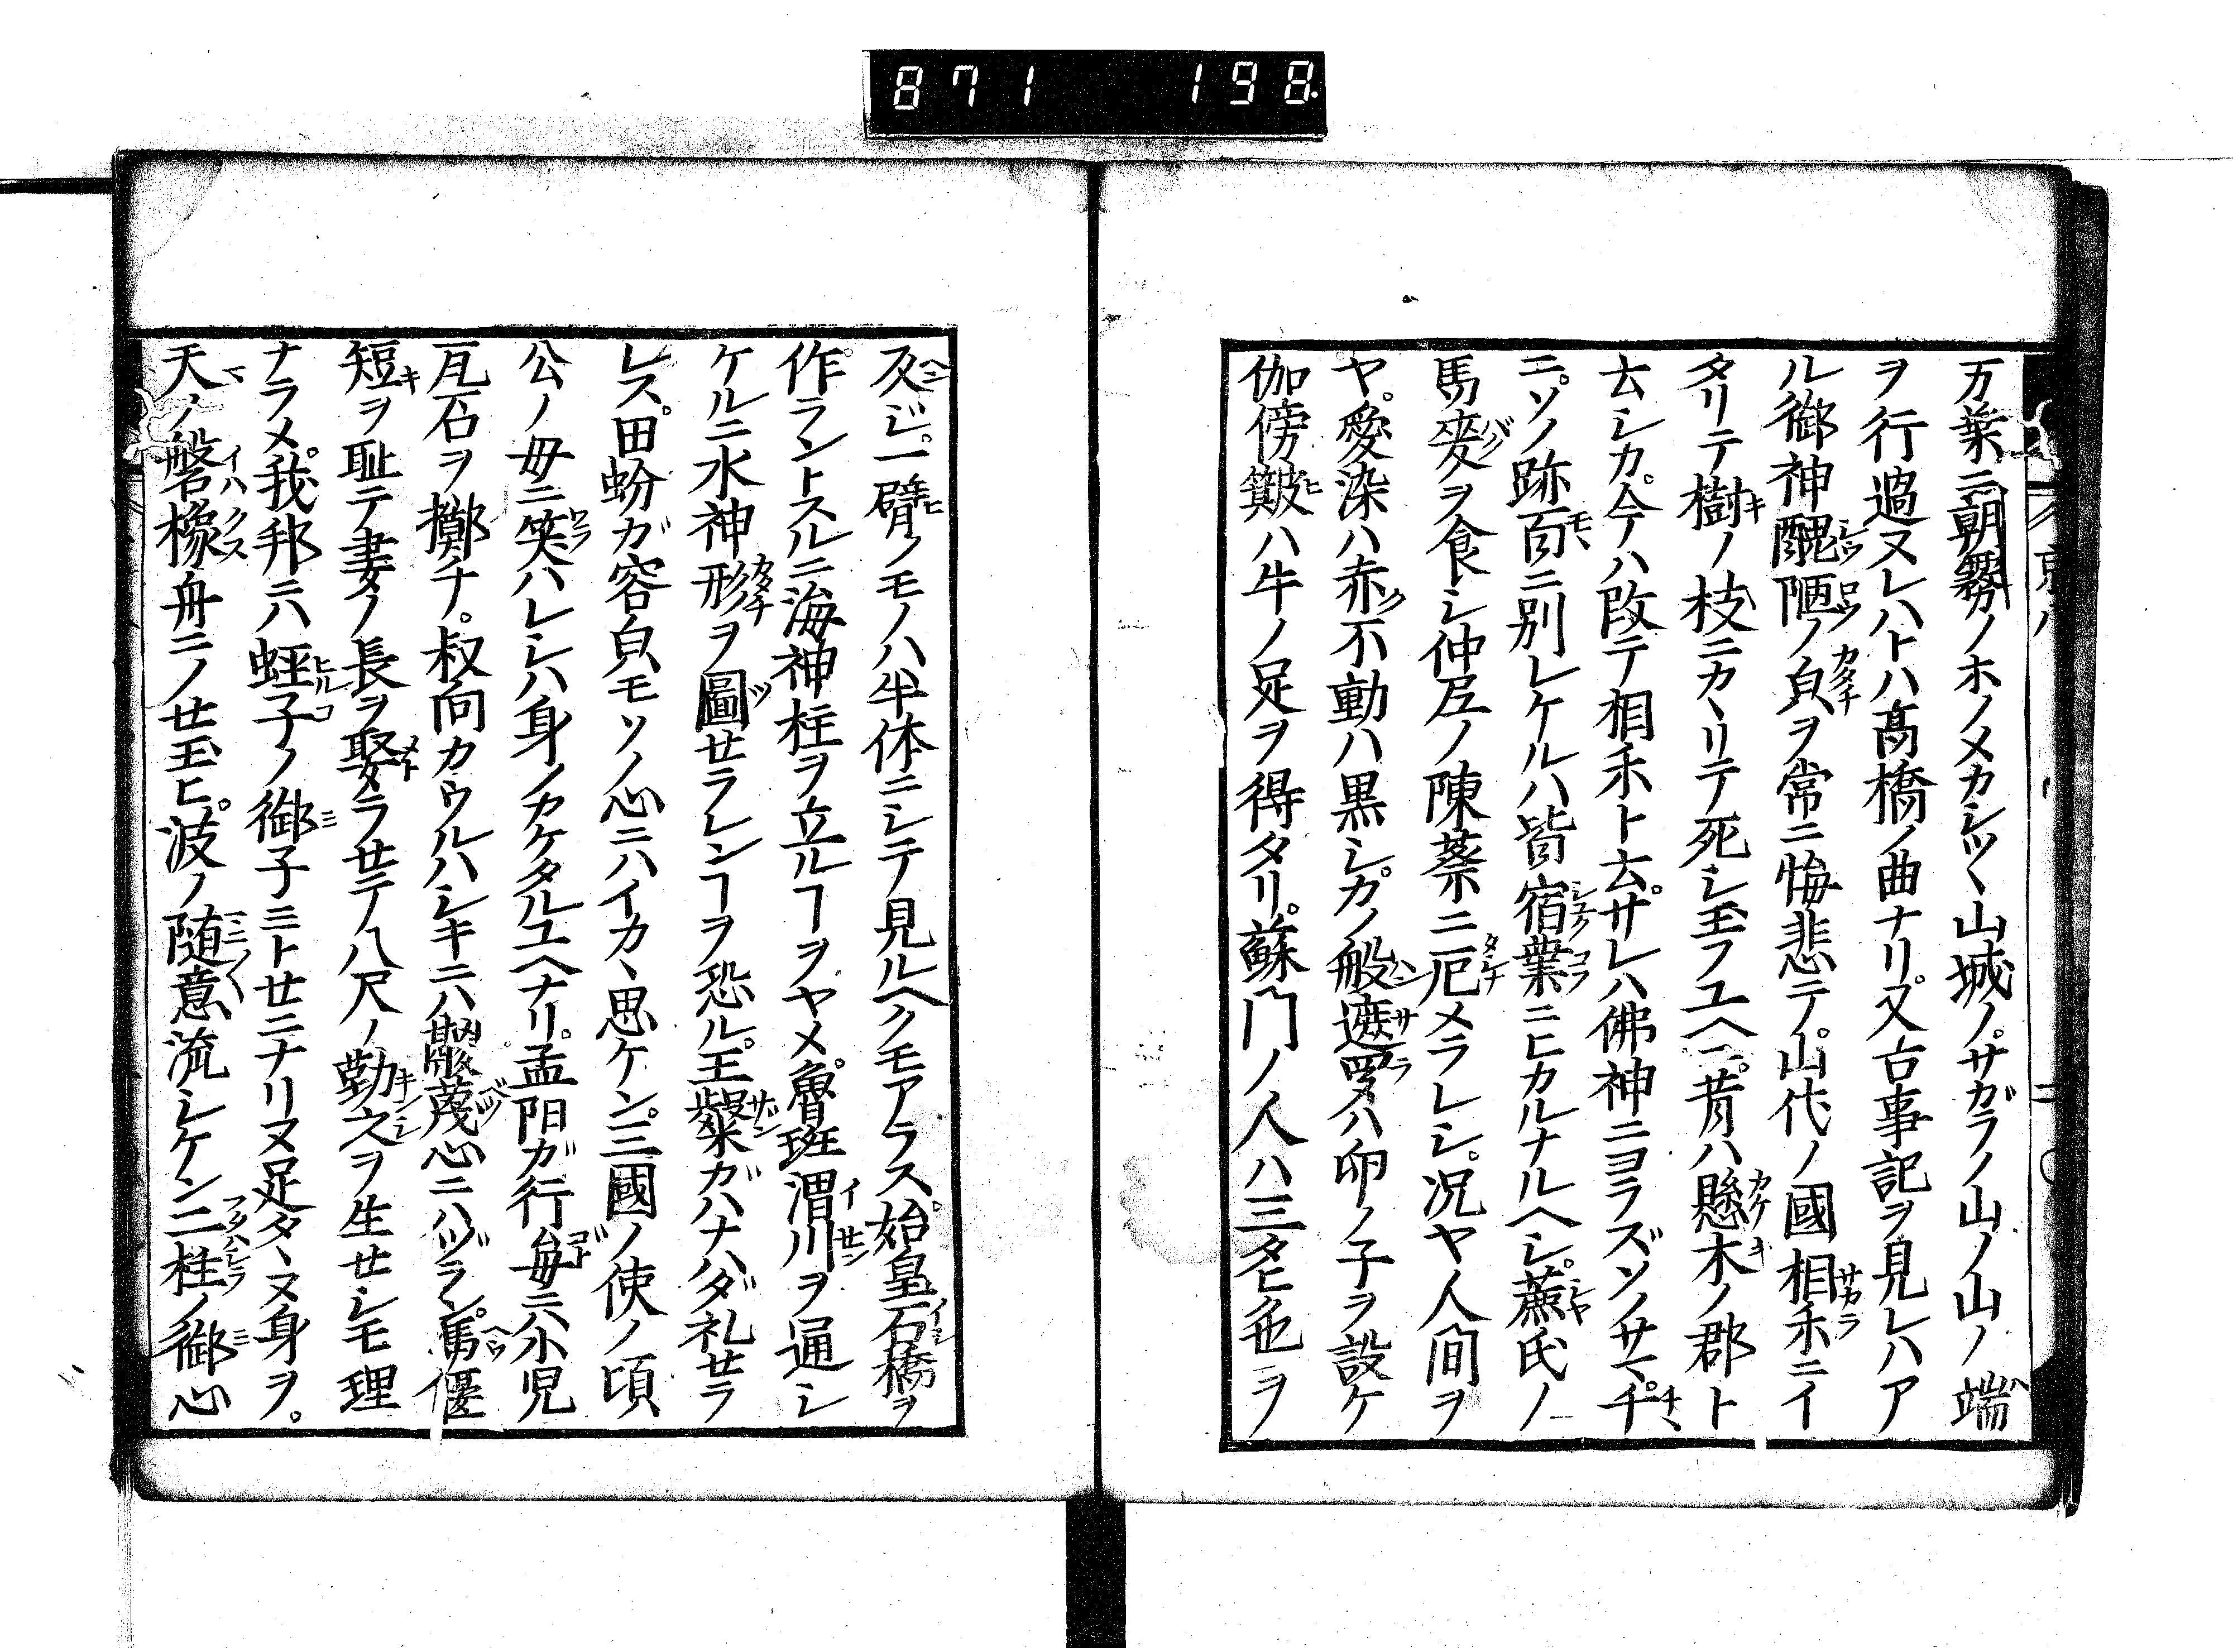 871 198
万葉ニ朝霧ノホノメカシツヽ山城ノ。サガラノ山ノ山ノ端
ヲ行過ヌレハトハ高橋ノ曲ナリ。又古事記ヲ見レハア
ル御神醜陋ノ皃ヲ常ニ悔悲テ。山代ノ國相禾ニイ
タリテ樹ノ枝ニカヽリテ死シ玉フユヘニ。昔ハ懸木ノ郡ト
云シカ。今ハ改テ相禾ト云。サレハ佛神ニヨラズソノサマ。チヽ
ニ。ソノ跡百ニ別レケルハ皆宿業ニヒカルナルヘシ。蕉氏ノ
馬麥ヲ食シ仲尼ノ陳蔡ニ厄メラレシ。况ヤ人間ヲ
ヤ。愛染ハ赤ク不動ハ黒シ。カノ般遮羅ハ卵ノ子ヲ設ケ
伽傍簸ハ牛ノ足ヲ得タリ。蘇門ノ人ハ三タヒ色ヲ
反ジ。一臂ノモノハ半体ニシテ見ルヘクモアラス。始皇石橋ヲ
作ラントスルニ海神柱ヲ立ルヿヲヤメ。魯班渭川ヲ通シ
ケルニ水神形ヲ圖セラレンヿヲ恐ル。王粲ガハナハダ礼セラ
レス。田蚡ガ容皃モソノ心ニハイカヽ思ケン。三國ノ使ノ頃
公ノ母ニ笑ハレシハ身ノカケタルユヘナリ。孟陽ガ行毎ニ六小児
瓦石ヲ擲チ。叔向カウルハシキニハ鬷蔑心ニハヅラン。馬偃
短ヲ耻テ妻ノ長ヲ娶ラセテノ八尺ノ勤之ヲ生セシモ理
ナラメ。我邦ニハ蛭子ノ御子ミトセニナリヌ足タヽヌ身ヲ。
天ノ磐橡舟ニノセ玉ヒ。波ノ随意流シケン二柱ノ御心